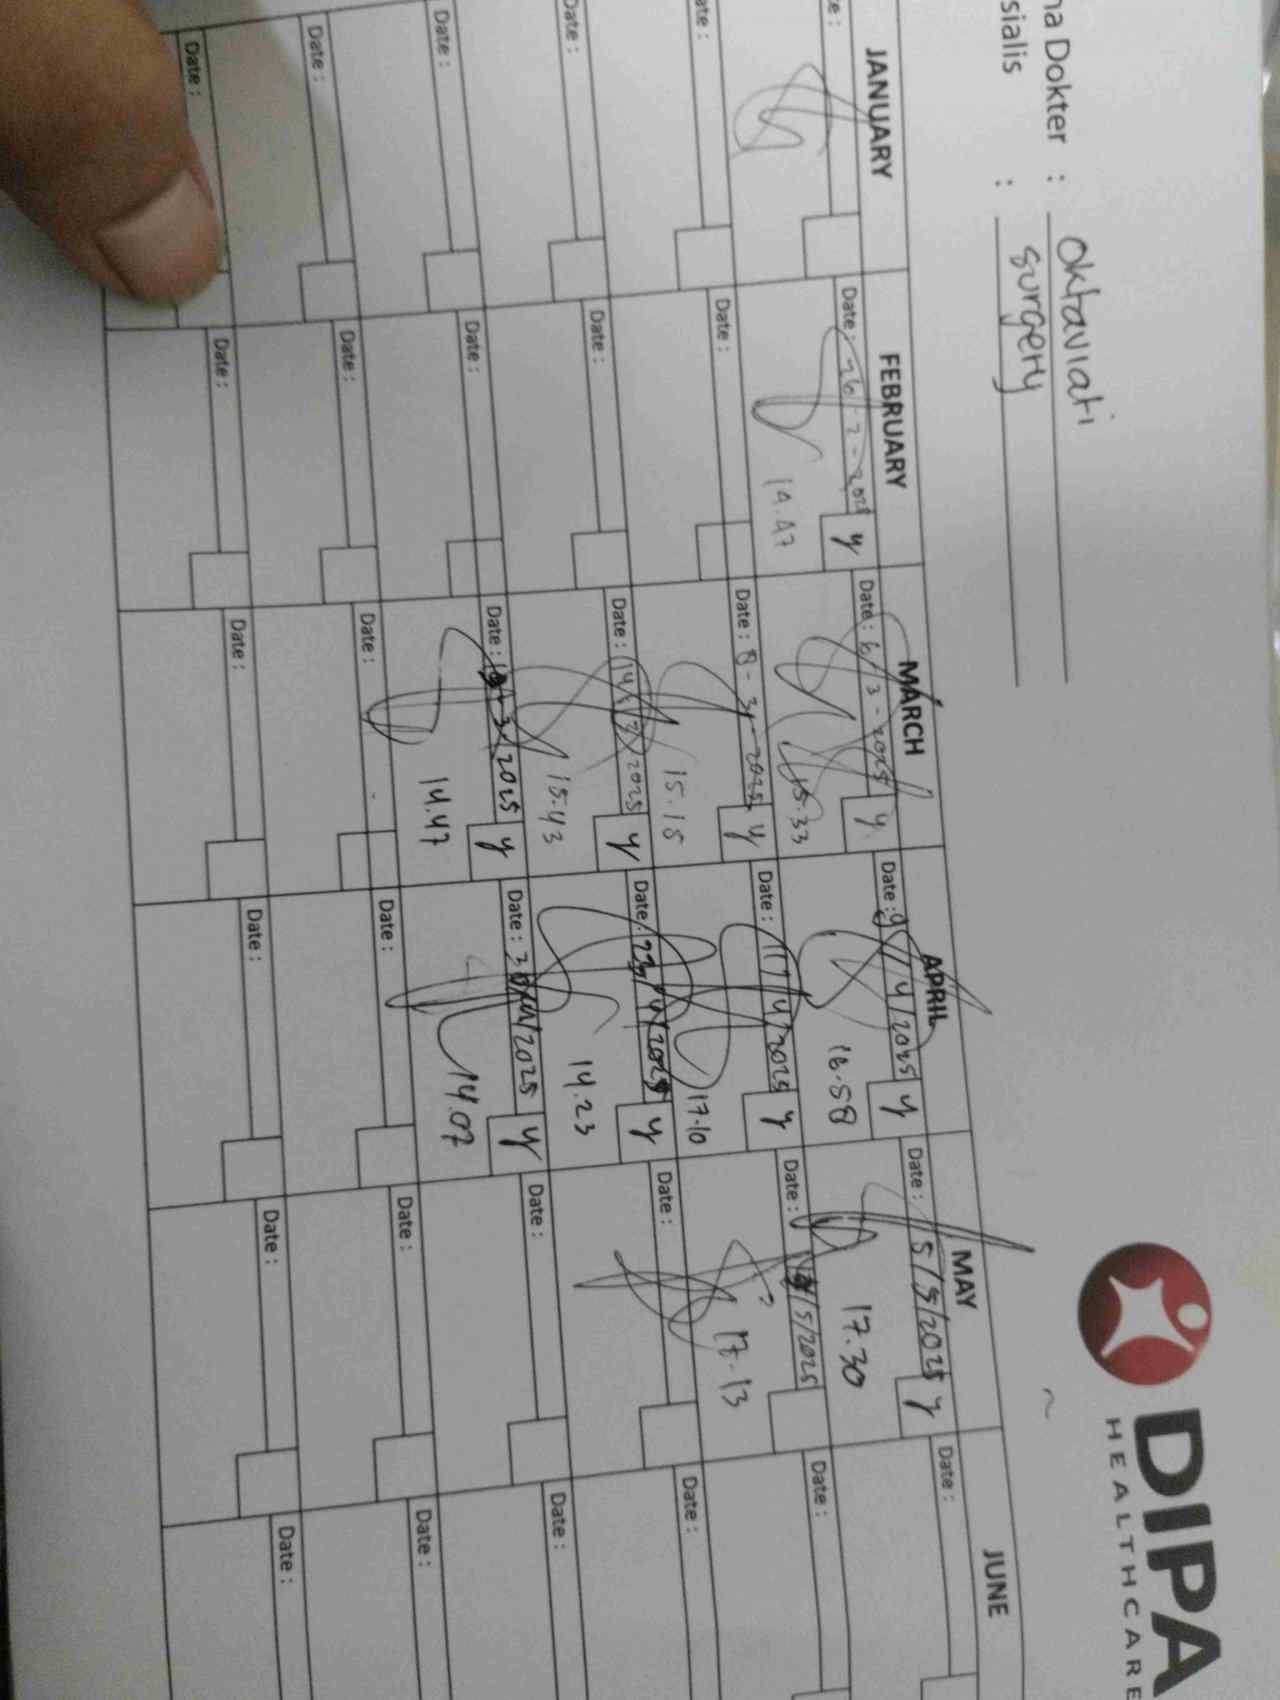 DIPA
HEALTHCARE
na Dokter : Oktaviati
sialis : surgery
JANUARY FEBRUARY MARCH APRIL MAY JUNE
te: Date: 26-2-2025 y Date: 6-3-2025 y Date: 9/4/2025 y Date: 5/5/2025 y Date:
14.47 15.33 16.58 17.30
ate: Date: Date: 8-3-2025 y Date: 11/4/2025 y Date: /5/2025 Date:
15.15 17.10 17.13
Date: Date: Date: 14/3/2025 y Date: 23/4/2025 y Date: Date:
15.43 14.23
Date: Date: Date: /3/2025 y Date: 30/4/2025 y Date: Date:
14.47 14.07
Date: Date: Date: Date: Date: Date:
Date: Date: Date: Date: Date: Date: